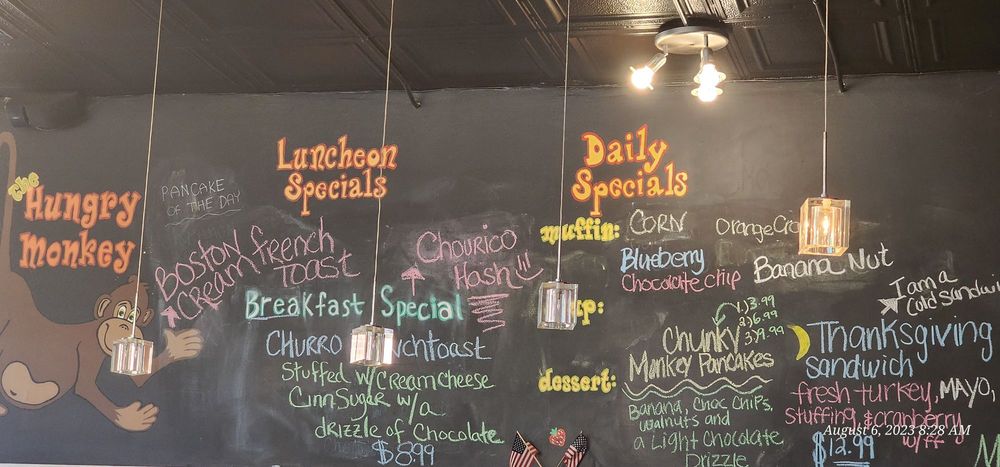 the
Hungry
Monkey
PANCAKE
OF THE DAY
Luncheon
Specials
Boston French
Cream Toast
Chourico
Hash!!!
Breakfast Special
CHURRO nchtoast
Stuffed w/ Creamcheese
CinnSugar w/a
drizzle of Chocolate
$8.99
Daily
Specials
muffin:
CORN
Orange Cra
Blueberry
Chocolate chip
Banana Nut
p:
Chunky
Monkey Pancakes
1) 3.99
2) 6.99
3) 9.99
dessert:
Banana, Choc Chips,
walnuts and
a Light Chocolate
Drizzle
I am a
Cold sandwi
Thanksgiving
sandwich
fresh turkey, MAYO,
stuffing, & cranberry
w/ff
$12.99
August 6, 2023 8:28 AM